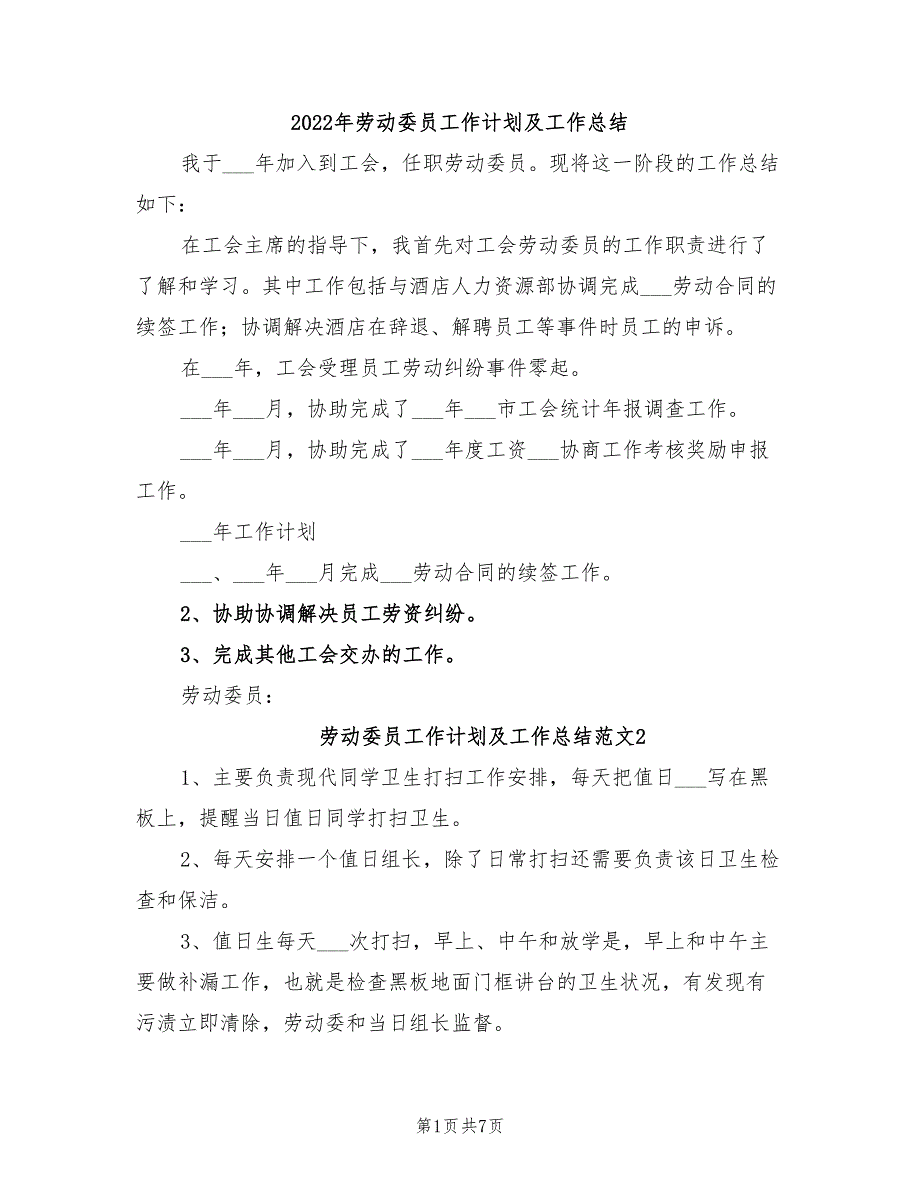 2022年劳动委员工作计划及工作总结
我于___年加入到工会，任职劳动委员。现将这一阶段的工作总结
如下：
在工会主席的指导下，我首先对工会劳动委员的工作职责进行了
了解和学习。其中工作包括与酒店人力资源部协调完成___劳动合同的
续签工作；协调解决酒店在辞退、解聘员工等事件时员工的申诉。
在___年，工会受理员工劳动纠纷事件零起。
___年___月，协助完成了___年___市工会统计年报调查工作。
___年___月，协助完成了___年度工资___协商工作考核奖励申报
工作。
___年工作计划
___、___年___月完成___劳动合同的续签工作。
2、协助协调解决员工劳资纠纷。
3、完成其他工会交办的工作。
劳动委员：
劳动委员工作计划及工作总结范文2
1、主要负责现代同学卫生打扫工作安排，每天把值日___写在黑
板上，提醒当日值日同学打扫卫生。
2、每天安排一个值日组长，除了日常打扫还需要负责该日卫生检
查和保洁。
3、值日生每天___次打扫，早上、中午和放学是，早上和中午主
要做补漏工作，也就是检查黑板地面门框讲台的卫生状况，有发现有
污渍立即清除，劳动委和当日组长监督。
第1页共7页